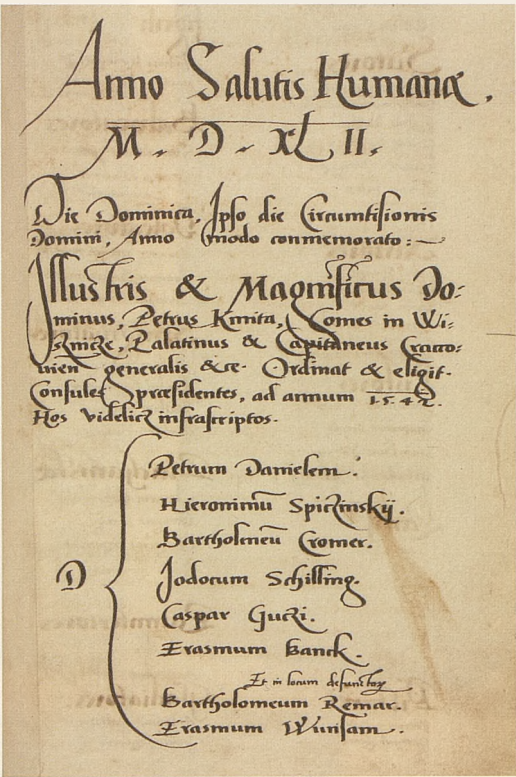 Anno Salutis Humanæ.
M. D. XLII.
Die Dominica, Ipso die Circumtisionis
Domini, Anno modo conmemorato:~
Illustris & Magnificus Do:
minus, Petrus Kmita, Comes in Wi-
Sznicze, Palatinus & Capitaneus Craco:
vien generalis &ce. Ordinat & eligit.
Consules præsidentes, ad annum 1542.
Hos videlicz infrascriptos.
Petrum Danielem.
Hieronimū Spiczinskÿ.
Bartholmeū Cromer.
Jodocum Schilling.
Caspar Guczi.
D
Erasmum Banck.
Et in locum defunctorꝝ
Bartholomeum Remar.
Erasmum Wunsam.